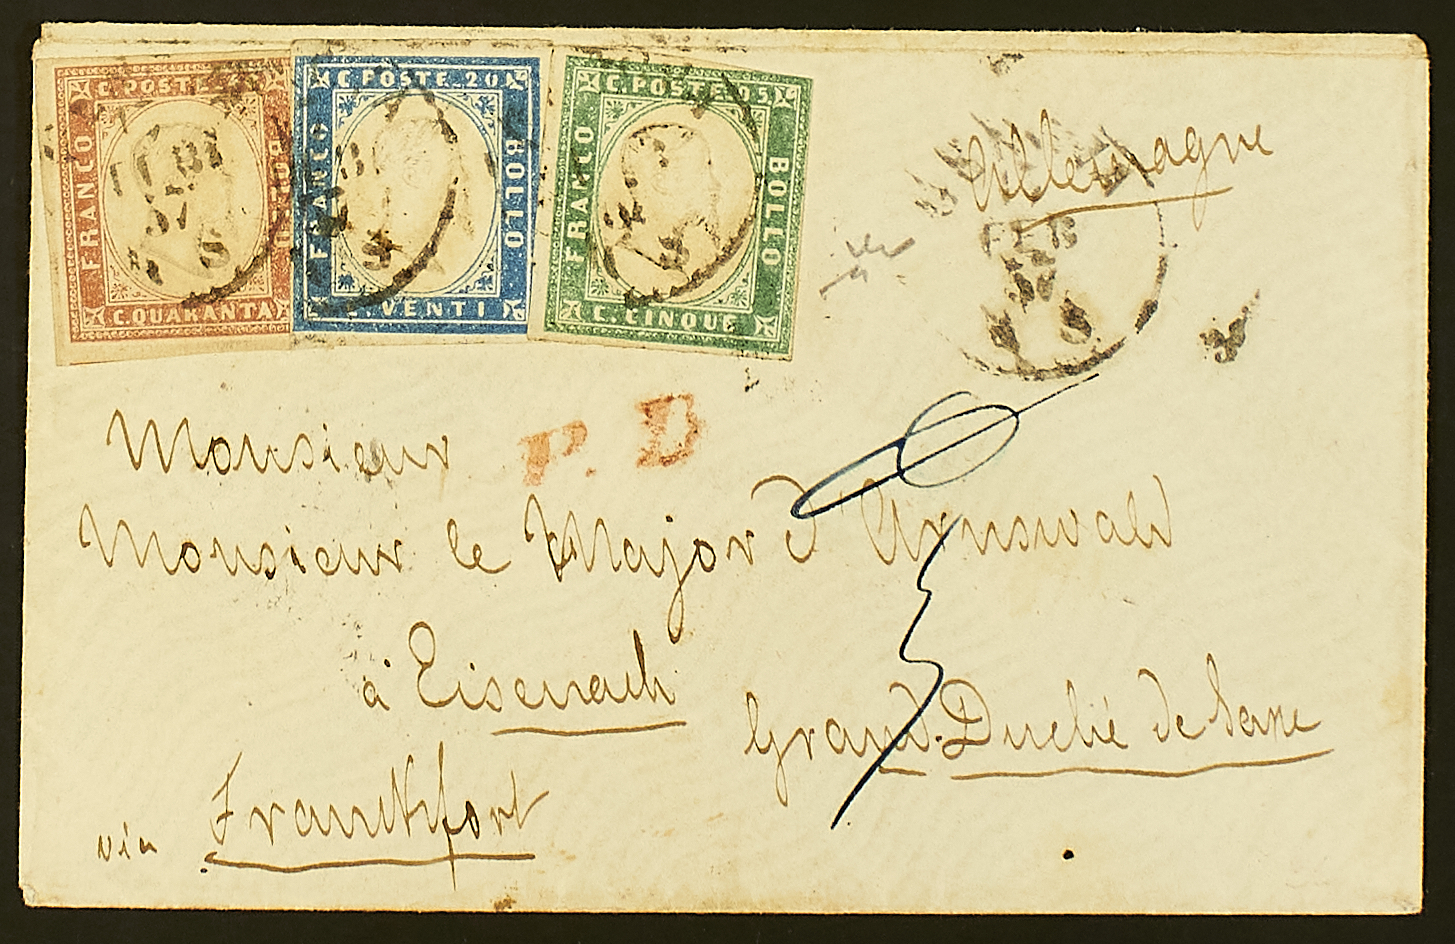 C. POSTE.
FRANCO
C. QUARANTA
C. POSTE. 20
FRANCO
BOLLO
C. VENTI
C. POSTE 05
FRANCO
BOLLO
C. CINQUE
Allemagne
FEB
P. D
Monsieur
Monsieur le Major d'Arnswald
à Eisenach
Grand Duché de Saxe
via Franckfort